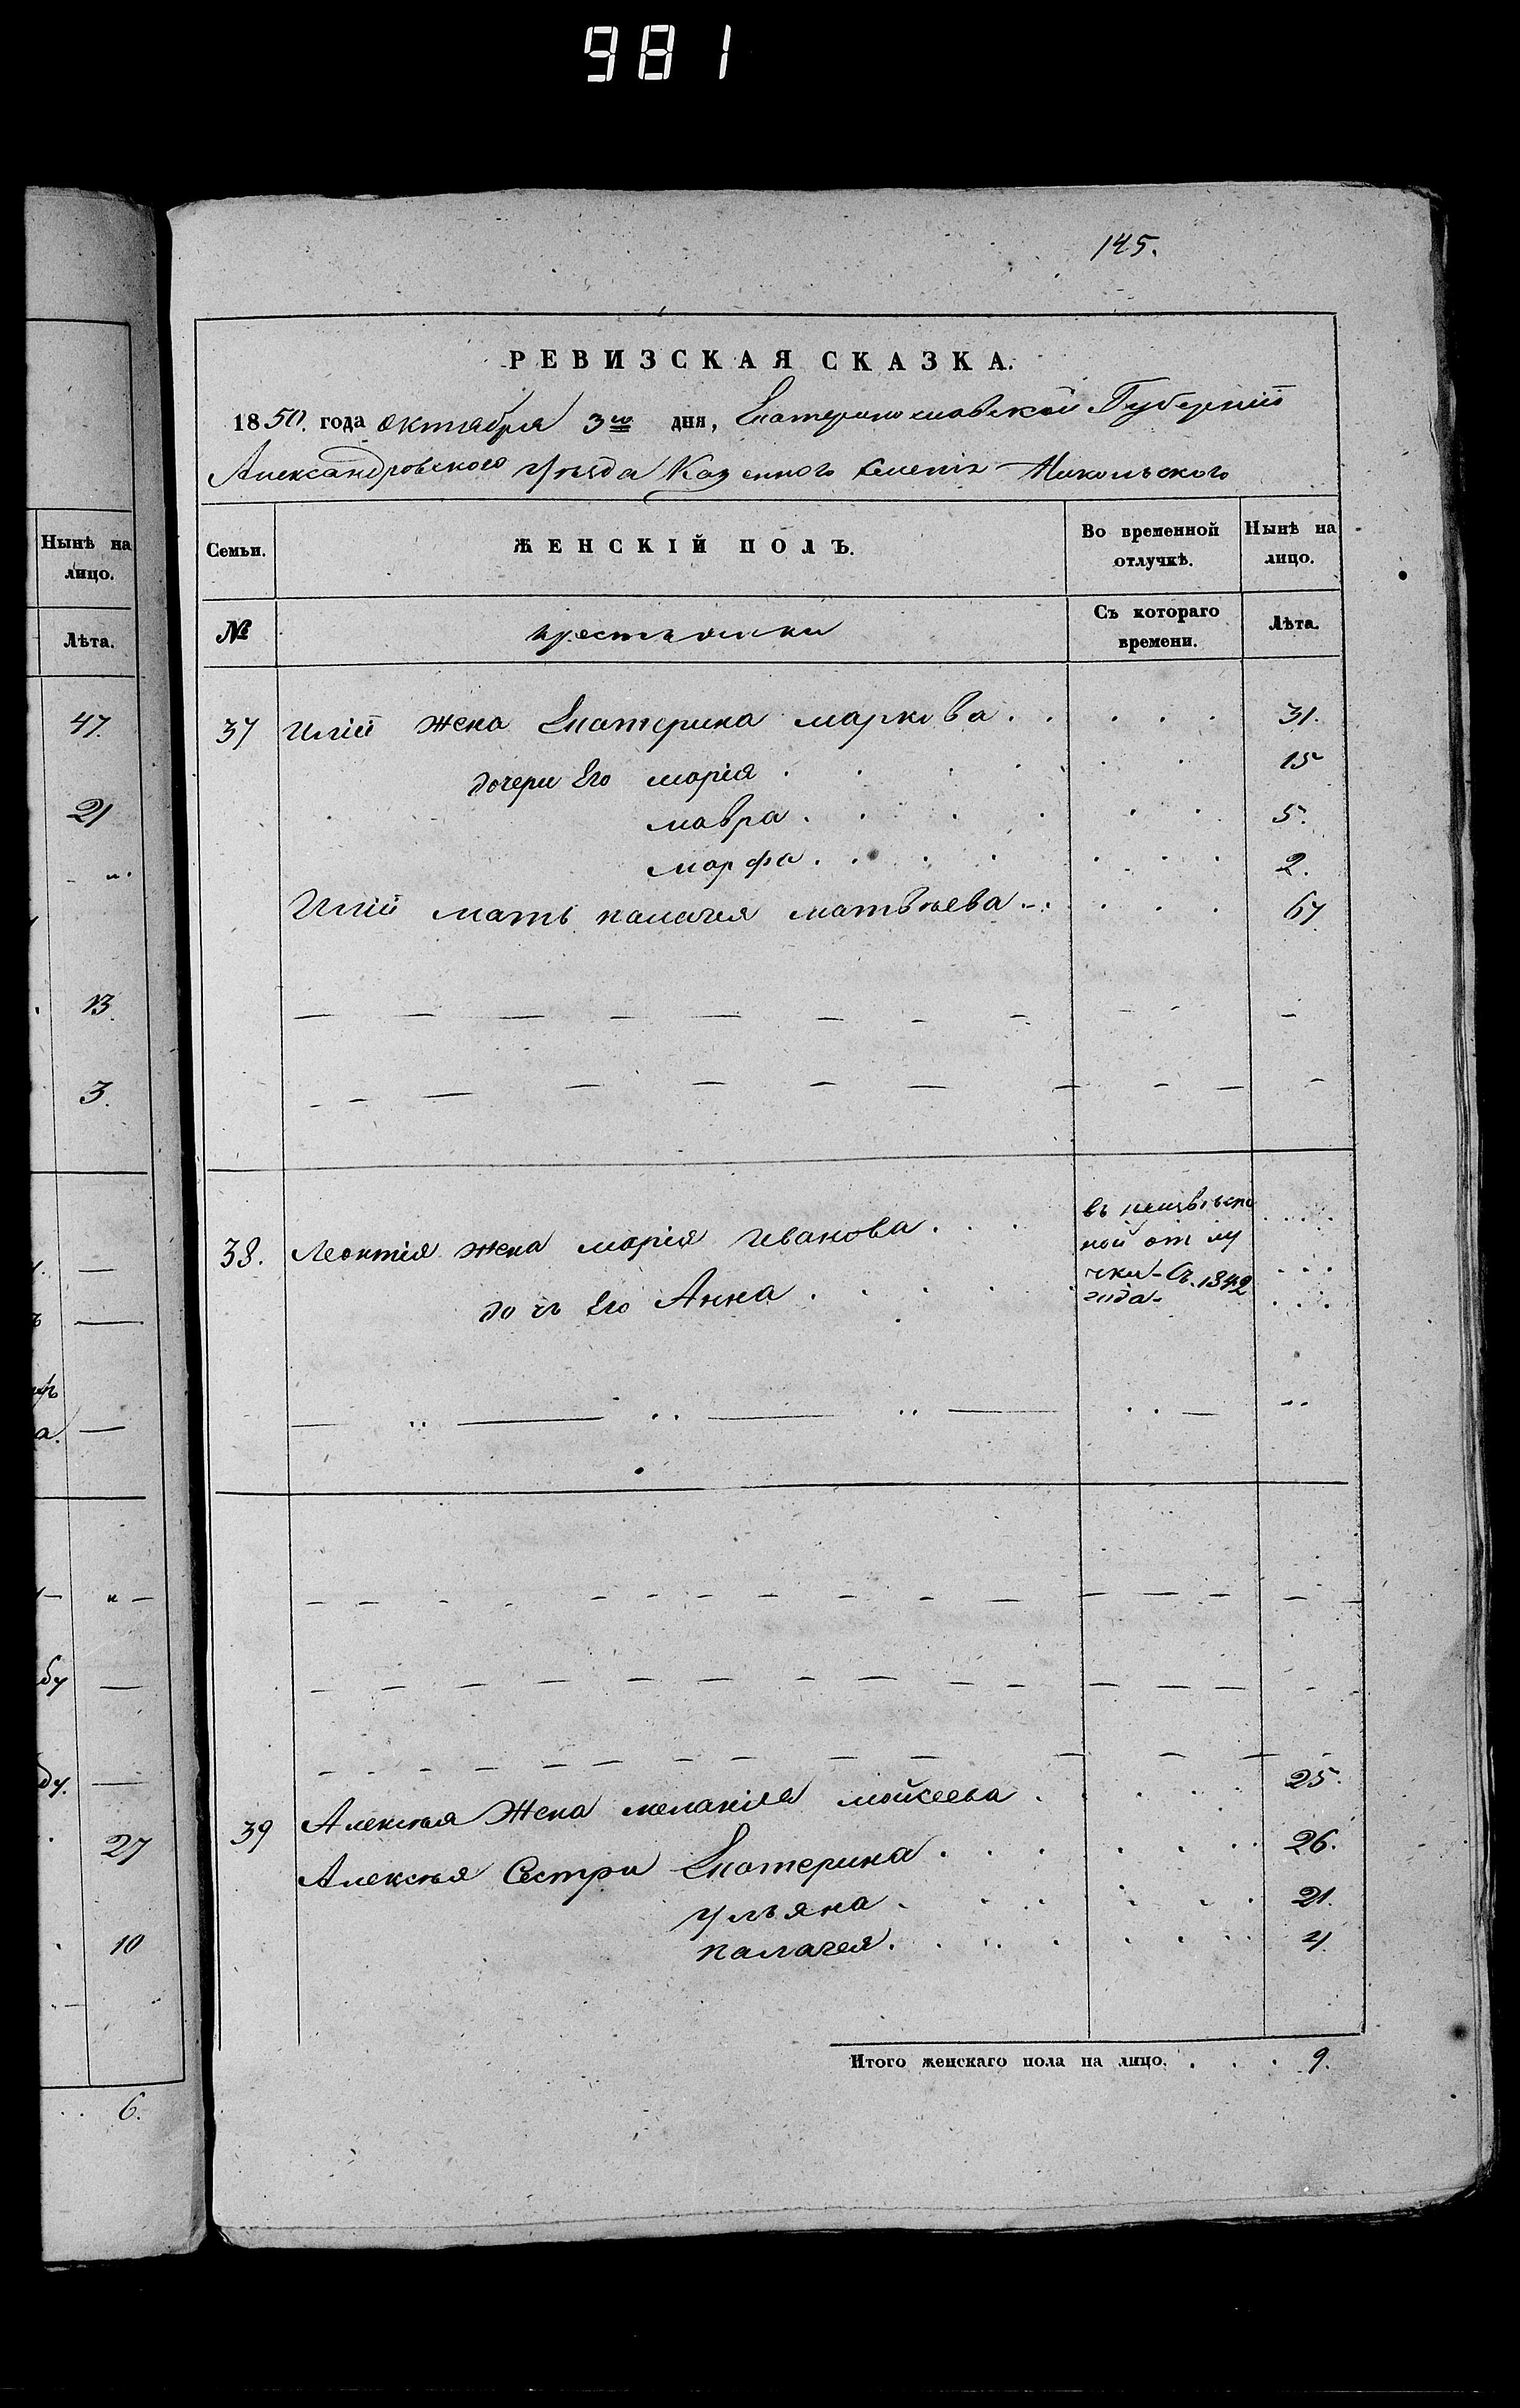 981
145.
РЕВИЗСКАЯ СКАЗКА.
1850. года октября 3го дня, Екатеринославской Губерніи
Александровского уѣзда Казенного селенія Никольского
Нынѣ на
лицо.
Лѣта.
47.
21
13.
3.
27
10
6.
Семьи. ЖЕНСКІЙ ПОЛЪ. Во временной отлучкѣ. Нынѣ на лицо.
№ крестьянки Съ котораго времени. Лѣта.
37 Иліи жена Екатерина маркова . . . . . 31.
дочери Его марія . . . . . 15
мавра . . . . . 5.
марфа . . . . . 2.
Иліи мать палагея матвѣева . . . . 67
38. Леонтія жена марія Иванова . . .
дочь Его Анна . . . .
въ неизвѣстно
ной от лу
чки - Съ 1842
года -
39 Алексѣя Жена меланія мойсеева . . . . 25.
Алексѣя Сестри Екатерина . . . . . 26.
ульяна . . . . . 21.
палагея . . . . . 4.
Итого женскаго пола на лицо. . . . 9.